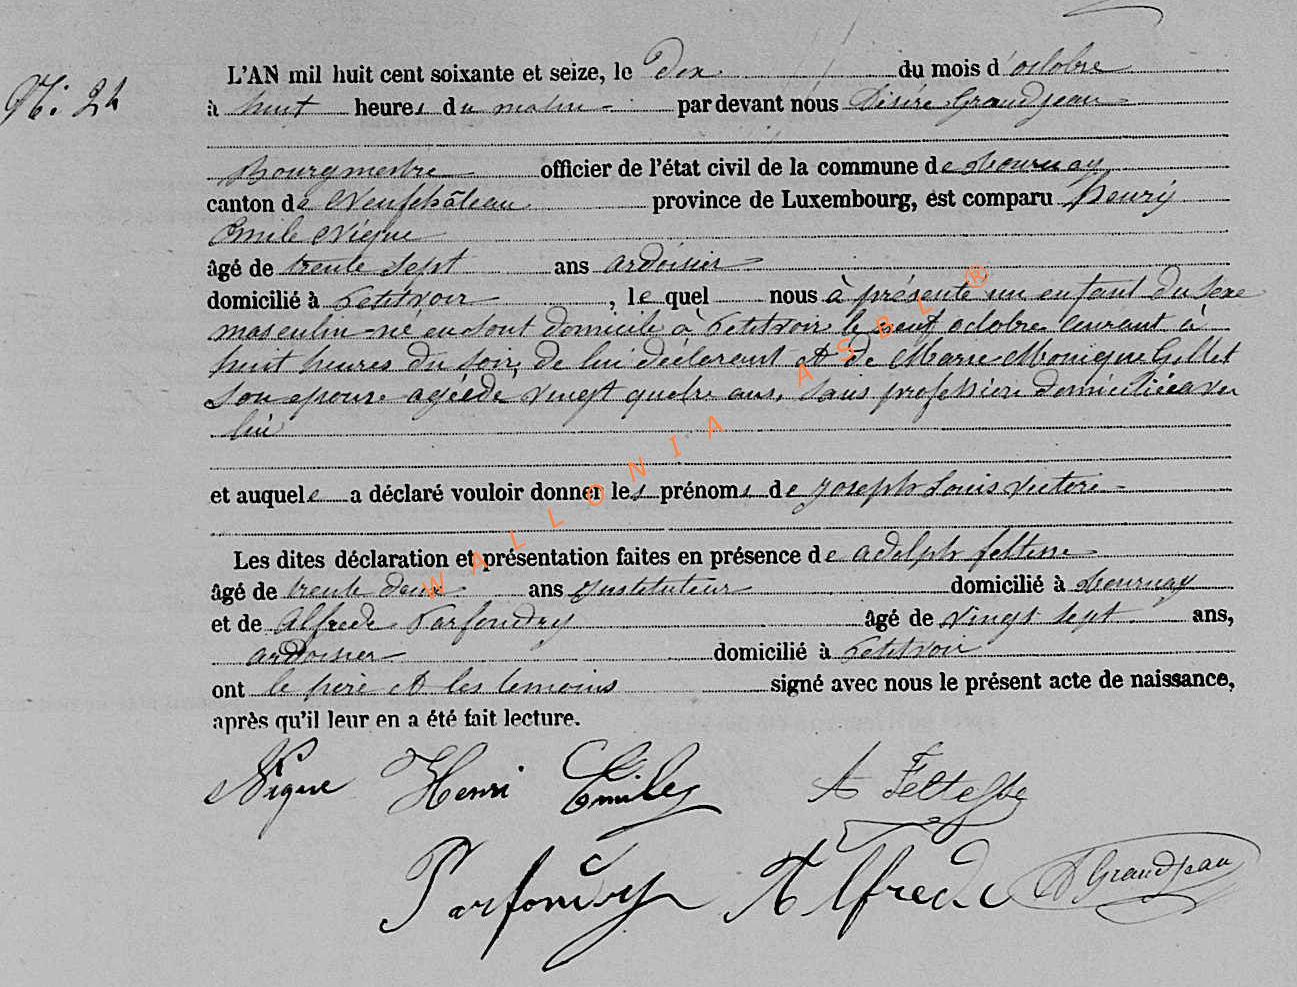 N: 24
L'AN mil huit cent soixante et seize, le dix du mois d'octobre
à huit heures du matin par devant nous Désiré Grandjean
Bourgmestre officier de l'état civil de la commune de Tournay
canton de Neufchâteau province de Luxembourg, est comparu Henrÿ
Emile Nieque
âgé de trente sept ans ardoisier
domicilié à Petitvoir, le quel nous à présenté un enfant du sexe
masculin né en sont domicile à Petitvoir le neuf octobre courant à
huit heures du soir, de lui déclarant et de Marie Monique Gillet
son epouse agéede vingt quatre ans, sans profession domiciliée avec
lui
et auquele a déclaré vouloir donner les prénoms de Joseph Louis Victore
Les dites déclaration et présentation faites en présence de adolph feltesse
âgé de trente deux ans Instituteur domicilié à Tournay
et de Alfrede Parfondry âgé de vingt sept ans,
ardoisier domicilié à Petitvoir
ont le père et les temoins signé avec nous le présent acte de naissance,
après qu'il leur en a été fait lecture.
Nigue Henri Emile A Feltesse
Parfondry Alfred D Grandjean
WALLONIA ASBL ®